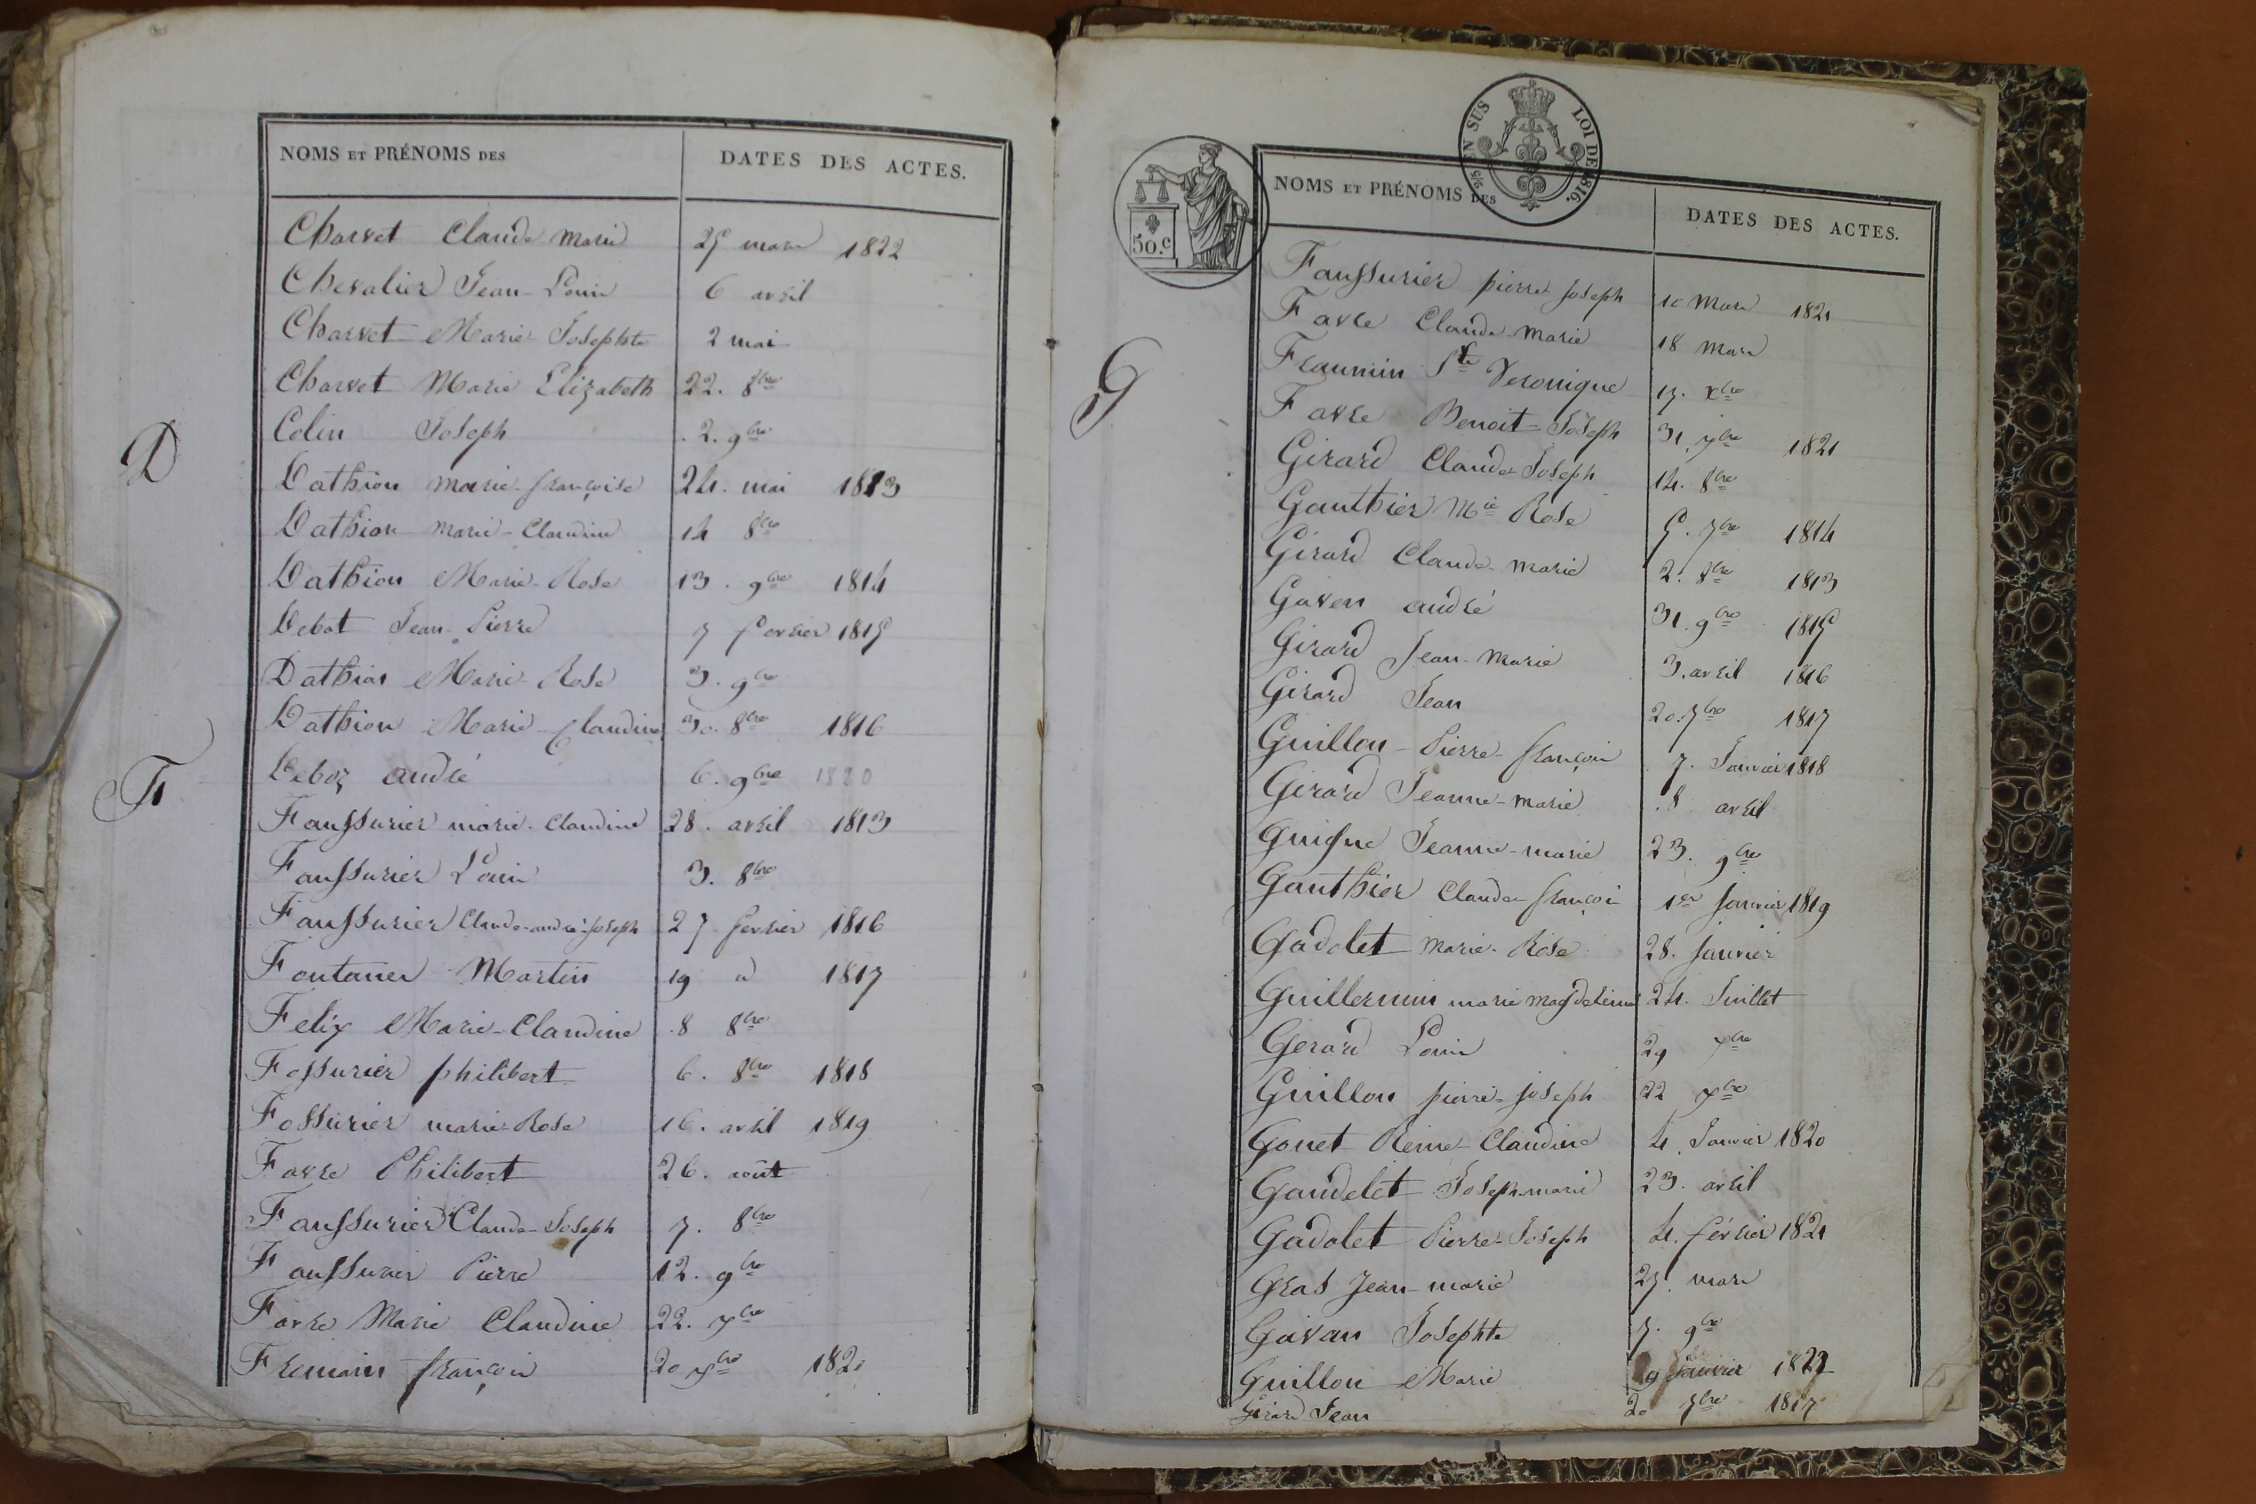 NOMS ET PRÉNOMS DES DATES DES ACTES.
Charvet Claude Marie 25 mars 1822
Chevalier Jean-Louis 6 avril
Charvet Marie Josephte 2 mai
Charvet Marie Elizabeth 22. 8bre
Colin Joseph 2. 9bre
D
Dathion marie-françoise 24. mai 1813
Dathion marie-Claudine 14 8bre
Dathion Marie-Rose 13. 9bre 1814
Debot Jean-Pierre 7 fevrier 1815
Dathion Marie-Rose 3. 9bre
Dathion Marie-Claudine 30. 8bre 1816
Deboz andré 6. 9bre 1820
F
Faussurier marie-Claudine 28. avril 1813
Faussurier Louis 3. 8bre
Faussurier Claude-andré-Joseph 27 fevrier 1816
Fontanier Martin 19 d 1817
Felix Marie-Claudine 8 8bre
Fossurier philibert 6. 8bre 1818
Fossurier marie-Rose 16. avril 1819
Favre Philibert 26. août
Faussurier Claude-Joseph 7. 8bre
Faussurier Pierre 12. 9bre
Favre Marie Claudine 22. xbre
Fremain françois 20 xbre 1820
50.c
LOI DE 1816.
EN SUS
NOMS ET PRÉNOMS DES DATES DES ACTES.
Faussurier pierre Joseph 10 Mars 1821
Favre Claude-Marie 18 Mars
Fraumin Ste Veronique 17. xbre
Favre Benoit-Joseph 31. xbre 1821
G
Girard Claude Joseph 14. 8bre
Gauthier Mie Rose 5. 7bre 1814
Girard Claude-marie 2. 8bre 1813
Gaven andré 31. 9bre 1815
Girard Jean-Marie 3. avril 1816
Girard Jean 20. 7bre 1817
Guillon-Pierre-françois 7. Janvier 1818
Girard Jeanne-marie 8 avril
Guigne Jeanne-marie 23. 9bre
Gauthier Claude françois 1er Janvier 1819
Gadolet Marie-Rose 28. Janvier
Guillermin marie Magdeleine 24. Juillet
Gerard Louis 29 xbre
Guillon pierre-joseph 22 xbre
Gonet Reine-Claudine 4. Janvier 1820
Gaudelet Joseph-marie 23. avril
Gadolet Pierre-Joseph 4. février 1821
Gras Jean-marie 27. mars
Gavan Josephte 7. 9bre
Guillon Marie 9 Janvier 1822
Girard Jean 20 7bre 1817